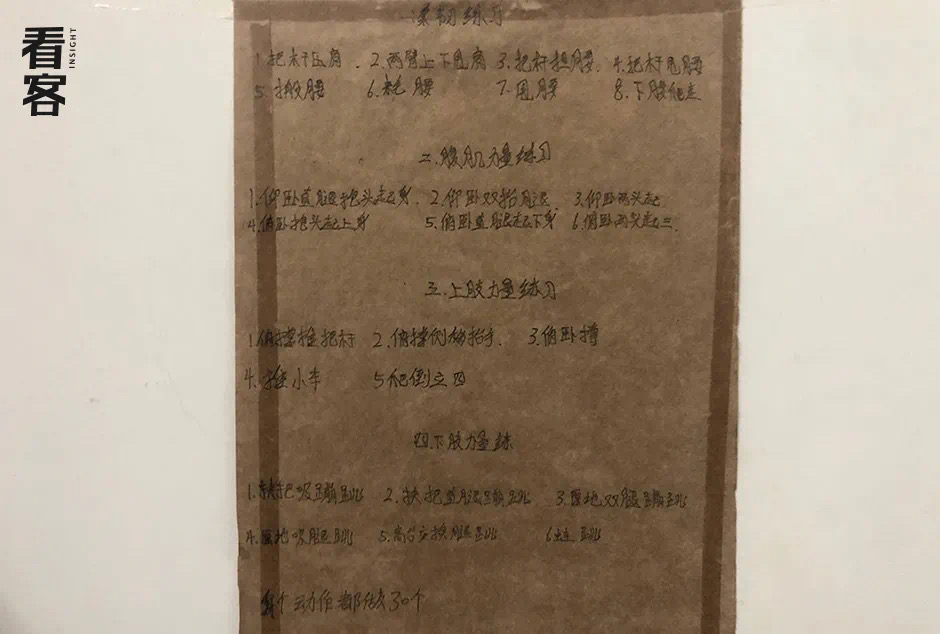 看客 INSIGHT
一柔韧练习
1.把杆压肩. 2.两臂上下甩肩 3.把杆担腰. 4.把杆甩腰
5.搬腰 6.耗腰 7.甩腰 8.下腰爬走
二.腹肌力量练习
1.仰卧直腿抱头起身. 2.仰卧双抬腿. 3.仰卧两头起
4.俯卧抱头起上身 5.俯卧直腿起下身 6.俯卧两头起三.
三.上肢力量练习
1.俯撑推把杆 2.俯撑侧抬手. 3.俯卧撑
4.推小车 5爬倒立四
四.下肢力量练
1.扶把吸蹦跳 2.扶把直腿蹦跳 3.原地双腿蹦跳
4.原地吸腿跳 5.高台交换腿跳 6蛙跳
每个动作都做30个